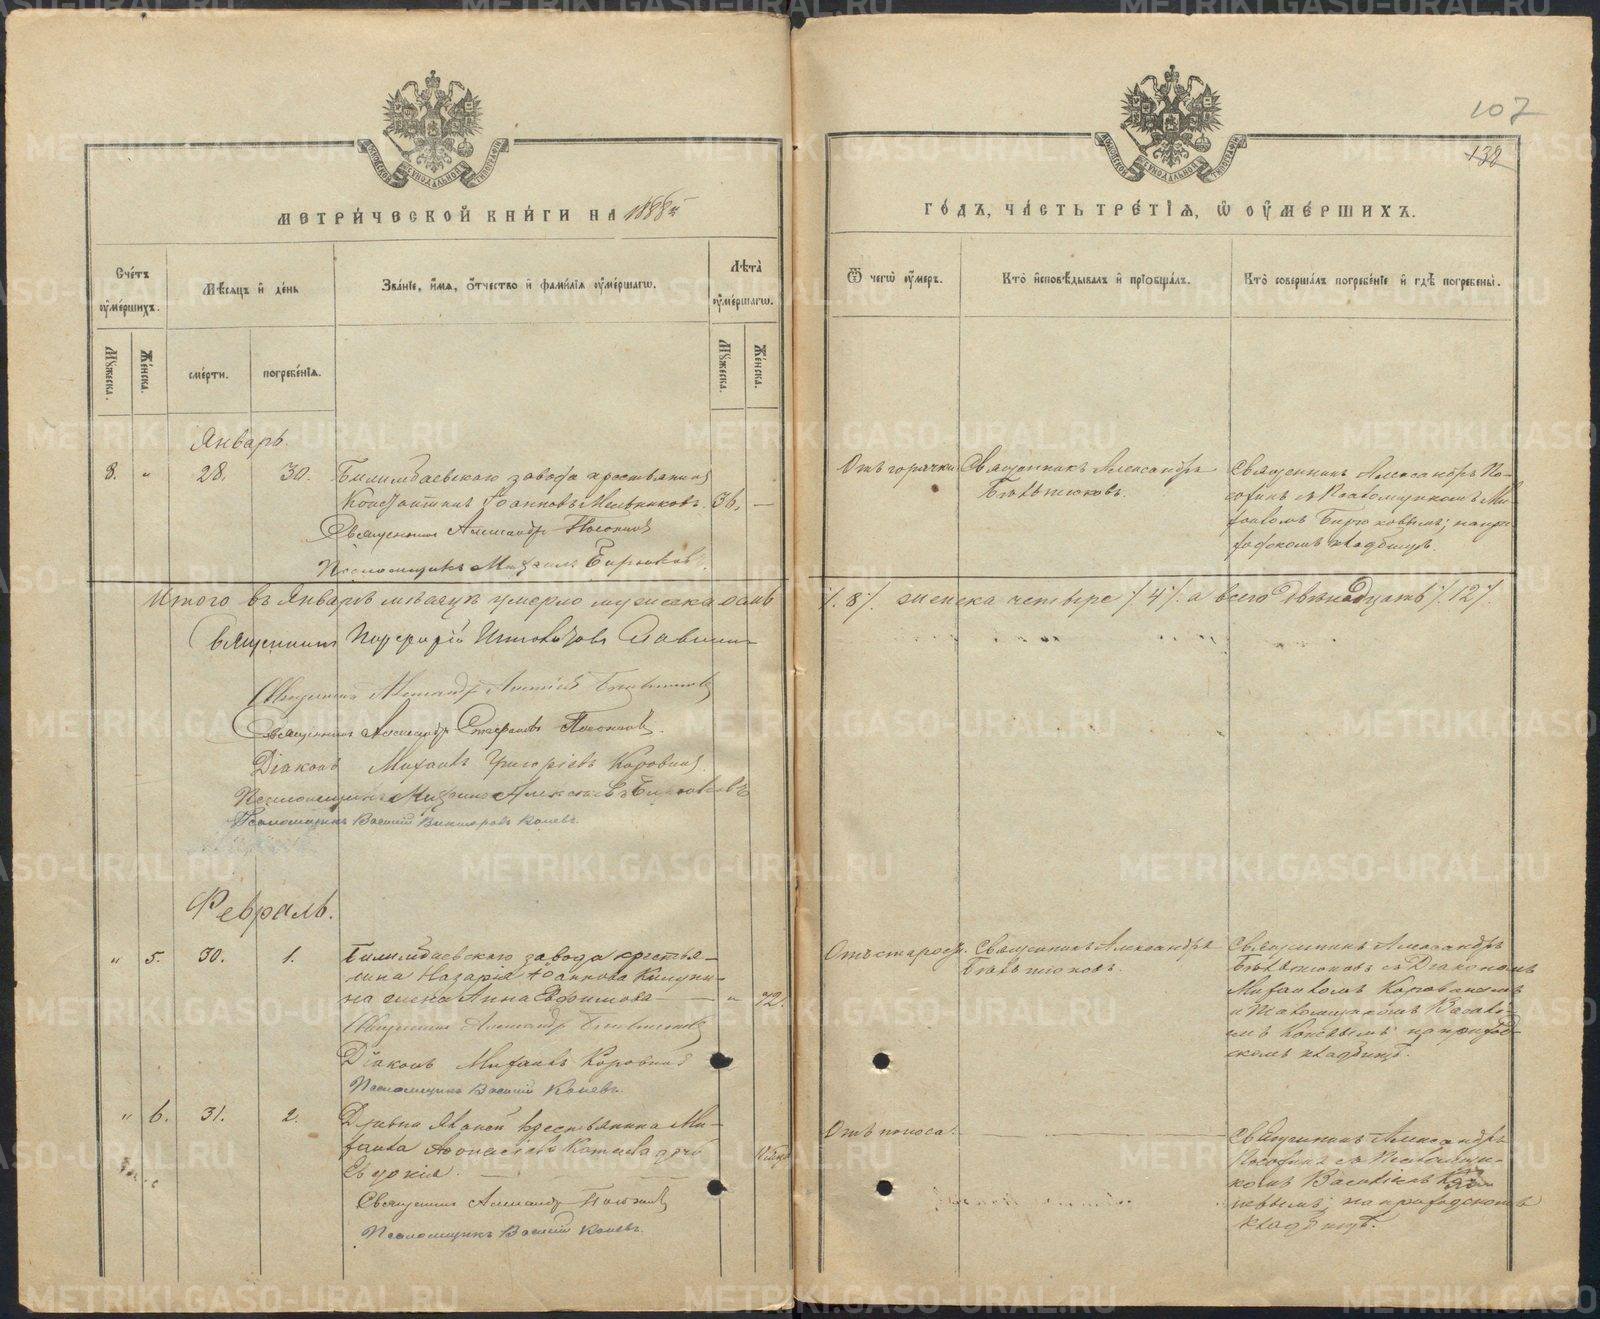 107
132
МЕТРИ́ЧЕСКОЙ КНИ́ГИ НА 1888й
ГО́ДЪ, ЧА́СТЬ ТРЕ́ТІѦ, Ѡ ОУМЕ́РШИХЪ.
Сче́тъ оуме́ршихъ.
Мѣ́сѧцъ и де́нь
Зва́ніе, и́мѧ, о́тчество и фами́лїѧ оуме́ршагѡ.
Лѣта̀ оуме́ршагѡ.
Ѿ чегѡ̀ оу́меръ.
Кто̀ исповѣ́дывалъ и прїобща́лъ.
Кто̀ соверша́лъ погребе́нїе и гдѣ̀ погребены̀.
Му́жеска.
Же́нска.
сме́рти.
погребе́нїѧ.
Му́жеска.
Же́нска.
Январь.
8. " 28. 30. Билимбаевскаго завода крестьянинъ
Константинъ Іоанновъ Мельниковъ. 36. —
Священникъ Александръ Посохинъ
Псаломщикъ Михаилъ Бирюковъ.
Отъ горячки
Священникъ Александръ
Священникъ Александръ По-
сохинъ съ Псаломщикомъ Ми-
хаиломъ Бирюковымъ; на при-
ходскомъ кладбищѣ.
Итого въ Январѣ мѣсяцѣ умерло мужеска осмь
/. 8 /. женска четыре /. 4 /. а всего двѣнадцать /. 12 /.
Священникъ Порфирій
Священникъ Александръ
Священникъ Александръ Стефановъ Посохинъ.
Діаконъ Михаилъ Григоріевъ Коровинъ.
Псаломщикъ Михаилъ Алексѣевъ Бирюковъ
Псаломщикъ Василій Викторовъ Конев.
Февраль.
" 5. 30. 1. Билимбаевскаго завода крестья-
нина Назарія Іоаннова
на жена Анна Евфимова — " 72.
Священникъ Александръ
Діаконъ Михаилъ Коровинъ
Псаломщикъ Василій Конев.
Отъ старости.
Священникъ Александръ
Священникъ Александръ
съ Діакономъ
Михаиломъ Коровинымъ
и Псаломщикомъ Василі-
емъ Коневымъ; на приход-
скомъ кладбищѣ.
" 6. 31. 2. Деревни крестьянина Ми-
хаила Аѳонасіева дочь
Евдокія.
Священникъ Александръ Посохинъ
Псаломщикъ Василій Конев.
Отъ поноса. —
Священникъ Александръ
Посохинъ съ Псаломщи-
комъ Василіемъ Ко-
невымъ; на приходскомъ
кладбищѣ.